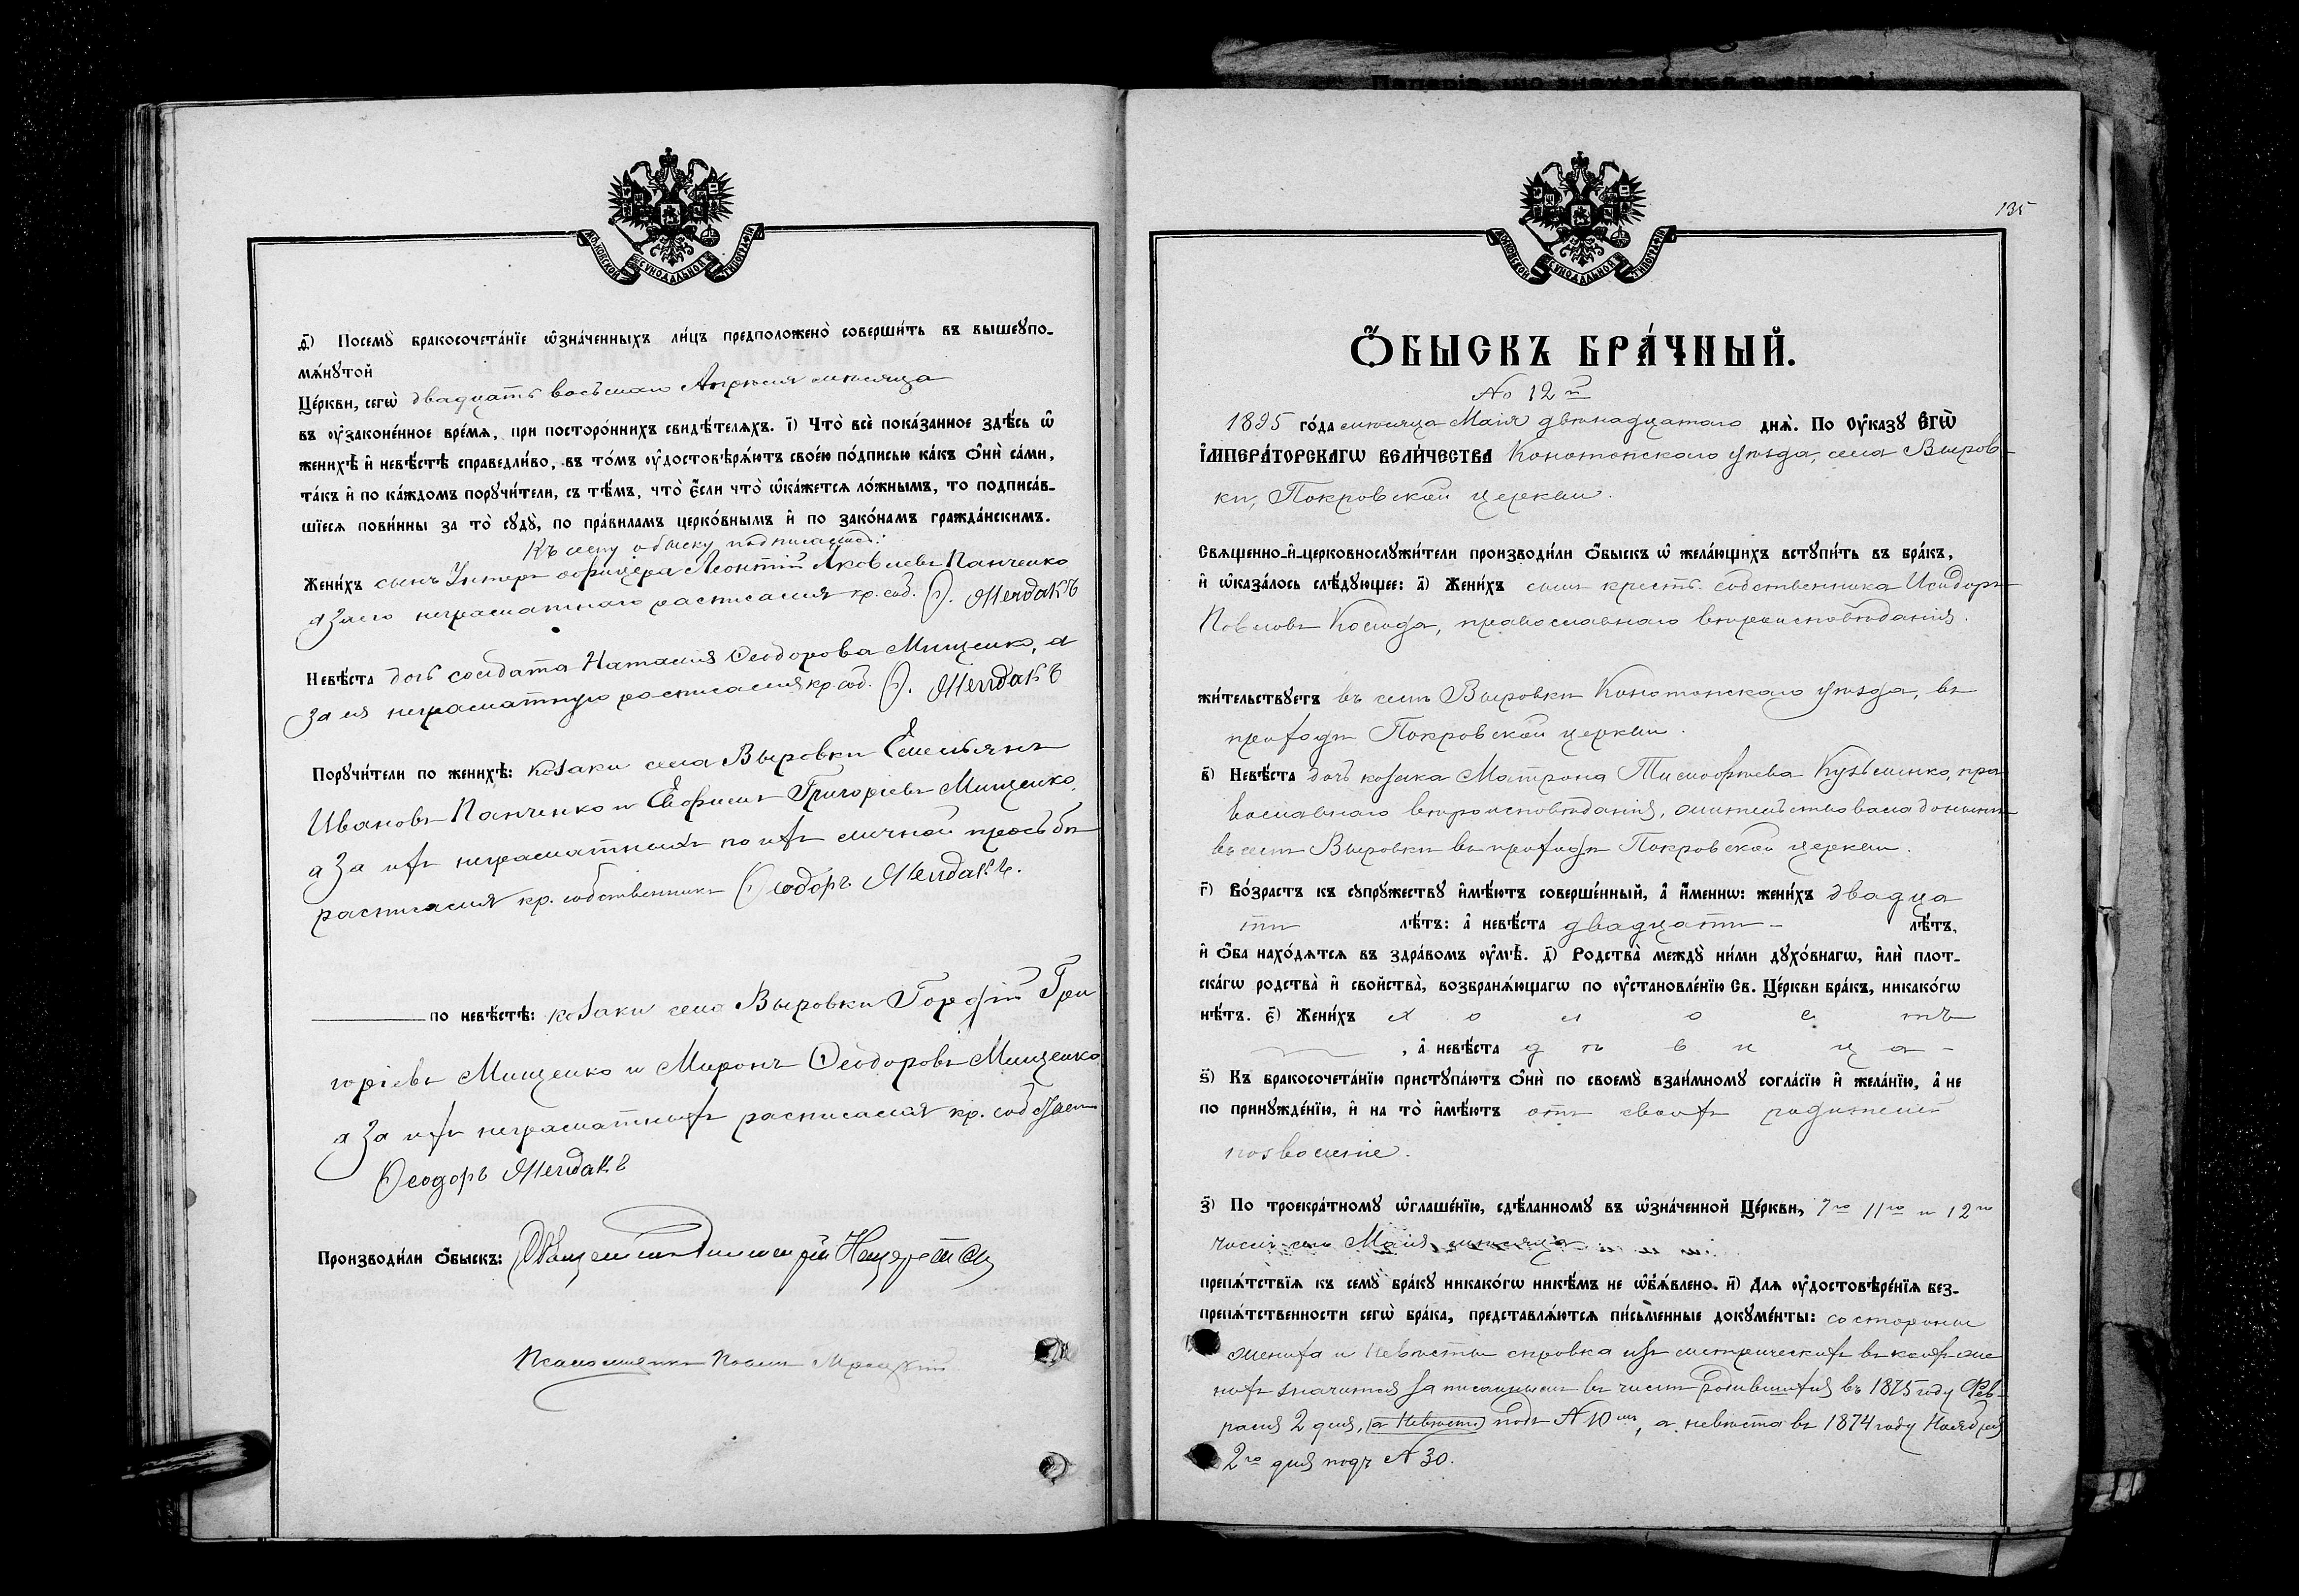 Московской Сѵнодальной Типографіи
д҃і) Посемꙋ̀ бракосочета́нїе ѡ҆зна́ченныхъ ли́цъ предположено̀ соверши́ть въ вышеꙋпо-
мѧ́нꙋтой
Це́ркви, сегѡ̀ двадцать восьмаго Апрѣля мѣсяца
въ ᲂу҆законе́нное вре́мѧ, при посторо́ннихъ свидѣ́телѧхъ. і҃) Что̀ всѐ пока́занное здѣ́сь ѡ҆
женихѣ̀ и҆ невѣ́стѣ справедли́во, въ то́мъ ᲂу҆достовѣрѧ́ютъ свое́ю по́дписью ка́къ ѻ҆нѝ са́ми,
та́къ и҆ по ка́ждомъ порꙋчи́тели, съ тѣ́мъ, что̀ є҆́сли что̀ ѡ҆ка́жетсѧ ло́жнымъ, то подписа́в-
шїесѧ пови́нны за то̀ сꙋдꙋ̀, по пра́виламъ церко́внымъ и҆ по зако́намъ гражда́нскимъ.
Къ сему обыску подписались:
Жени́хъ сынъ Унтеръ офицера Леонтій Яковлевъ Панченко
а за его неграматнаго расписался кр. соб. Ѳ. Мендакъ
Невѣ́ста дочь солдата Наталія Ѳеодорова Мищенко, а
за ея неграматную расписался кр. соб. Ѳ. Мендакъ
Порꙋчи́тели по женихѣ̀: козаки села Выровки Емельянъ
Ивановъ Панченко и Евфимъ Григоріевъ Мищенко,
а за ихъ неграматныхъ по ихъ личной просьбѣ
расписался кр. собственникъ Ѳеодоръ Мендакъ.
по невѣ́стѣ: козаки села Выровки Гордій Гри
горіевъ Мищенко и Миронъ Ѳеодоровъ Мищенко
а за ихъ неграматныхъ расписался кр. собствен
Ѳеодоръ Мендакъ
Производи́ли ѻ҆́быскъ: Священникъ
Псаломщикъ
135
Московской Сѵнодальной Типографіи
Ѻ҆́БЫСКЪ БРА́ЧНЫЙ.
№ 12й
1895 го́да мѣсяца Маія двѣнадцатаго днѧ̀. По Оу҆ка́зꙋ Є҆ГѠ̀
І҆МПЕРА́ТОРСКАГѠ ВЕЛИ́ЧЕСТВА Конотопскаго уѣзда, села Выров-
ки, Покровской церкви.
Свѧще́нно-и҆-церковнослꙋжи́тели производи́ли ѻ҆́быскъ ѡ҆ жела́ющихъ встꙋпи́ть въ бра́къ,
и҆ ѡ҆каза́лось слѣ́дꙋющее: а҃) Жени́хъ сынъ крестъ. собственника Исидоръ
Павловъ православнаго вѣроисповѣданія.
жи́тельствꙋетъ въ селѣ Выровкѣ Конотопскаго уѣзда, въ
приходѣ Покровской церкви.
в҃) Невѣ́ста дочь козака Матрона Тимофѣева Кузьменко, пра
вославнаго вѣроисповѣданія, жительствовала донынѣ
въ селѣ Выровкѣ въ приходѣ Покровской церкви.
г҃) Во́зрастъ къ сꙋпрꙋ́жествꙋ и҆мѣ́ютъ соверше́нный, а҆ и҆́менно: жени́хъ двадца
ти лѣ́тъ: а҆ невѣ́ста двадцати - лѣ́тъ,
и҆ ѻ҆́ба нахо́дѧтсѧ въ здра́вомъ ᲂу҆мѣ̀. д҃) Родства̀ междꙋ̀ ни́ми дꙋхо́внагѡ, и҆лѝ плот-
ска́гѡ родства̀ и҆ сво́йства, возбранѧ́ющагѡ по ᲂу҆становле́нїю Св. Це́ркви бра́къ, никако́гѡ
нѣ́тъ. є҃) Жени́хъ х о л о с тъ
, а҆ невѣ́ста д ѣ в и ц а -
ѕ҃) Къ бракосочета́нїю пристꙋпа́ютъ ѻ҆нѝ по своемꙋ̀ взаи́мномꙋ согла́сїю и҆ жела́нїю, а҆ не
по принꙋжде́нїю, и҆ на то̀ и҆мѣ́ютъ отъ своихъ родителей
позволеніе.
з҃) По троекра́тномꙋ ѡ҆глаше́нїю, сдѣ́ланномꙋ въ ѡ҆зна́ченной Це́ркви, 7го 11го и 12го
чиселъ сего Маія мѣсяца
препѧ́тствїѧ къ семꙋ̀ бра́кꙋ никако́гѡ никѣ́мъ не ѡ҆б̾ѧ́влено. и҃) Длѧ ᲂу҆достовѣре́нїѧ без-
препѧ́тственности сегѡ̀ бра́ка, представлѧ́ютсѧ пи́сьменные докꙋме́нты: со стороны
жениха и невѣсты справка изъ метрическихъ въ коихъ же
нихъ значится записаннымъ въ числѣ родившихся въ 1875 году Фев-
раля 2 дня, (а невѣста) подъ № 10мъ, а невѣста въ 1874 году Ноября
2го дня подъ № 30.